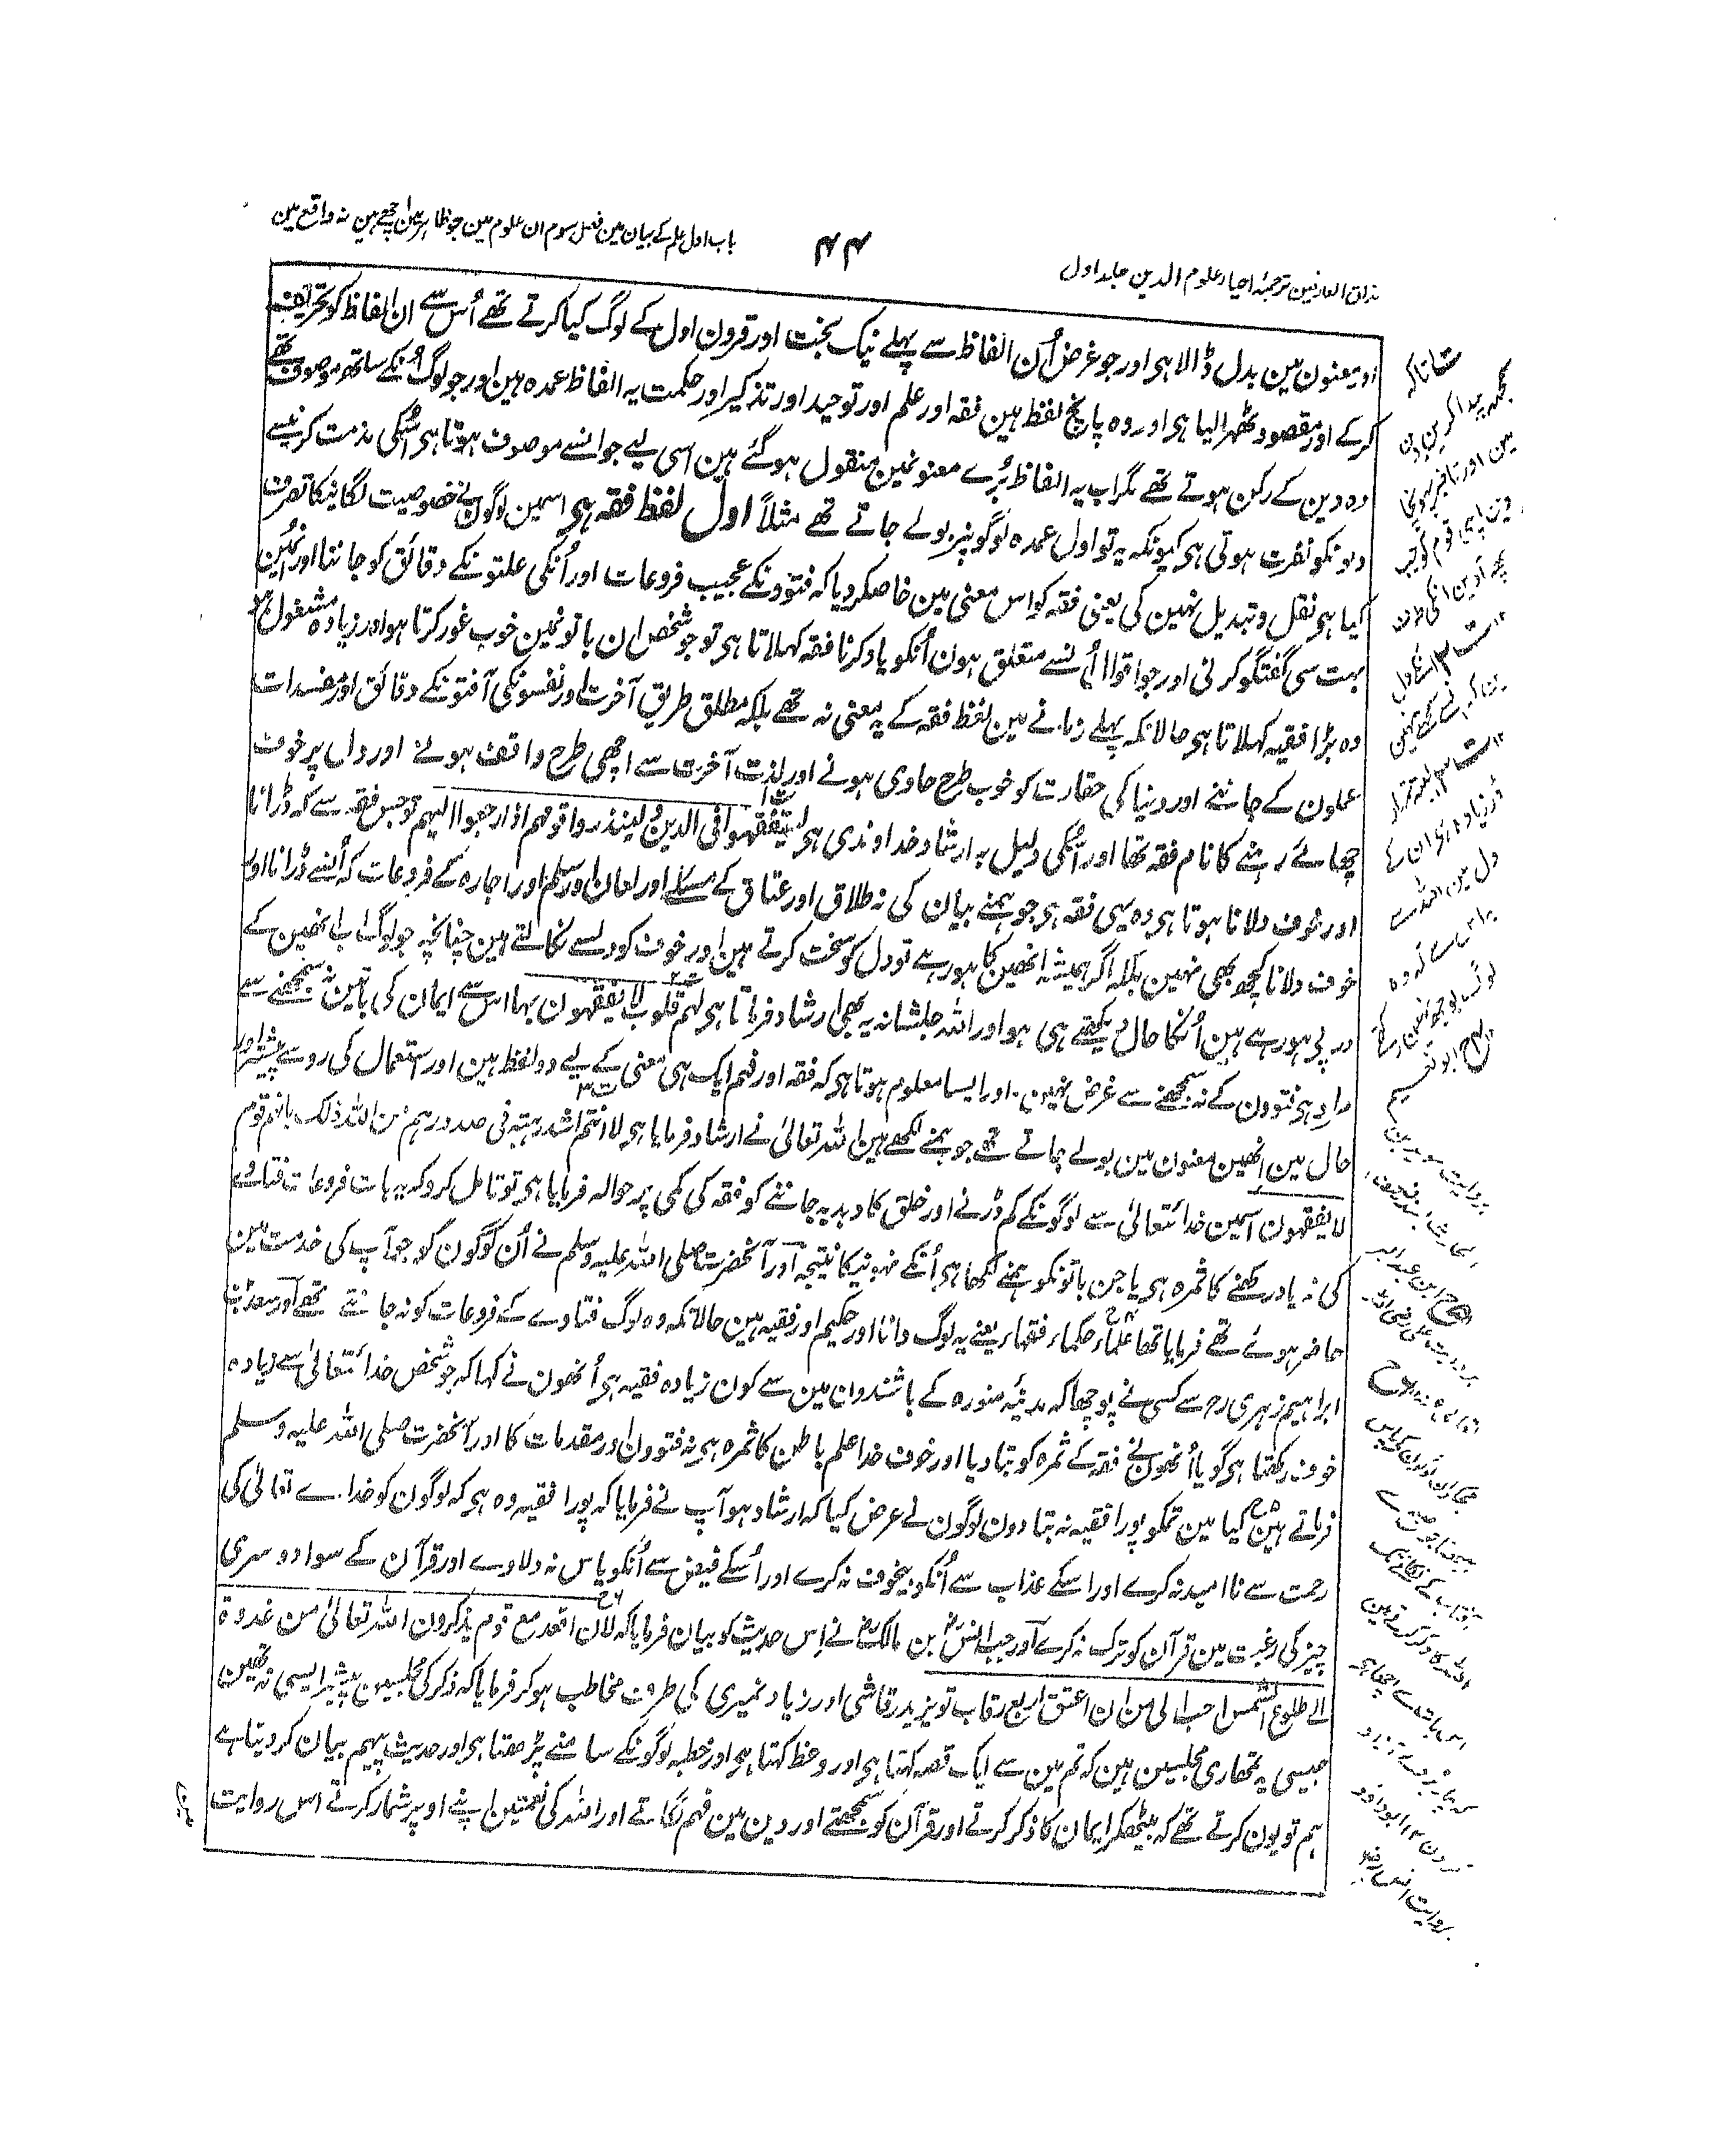 مذاق العارفین ترجمۂ احیاء علوم الدین جلد اول
۴۴
باب اول علم کے بیان مین فصل سوم ان علوم مین جو ظاہر مین اچھے ہین نہ واقع مین
اور معنون مین بدل ڈالا ہی اور جو غرض اُن الفاظ سے پہلے نیک بخت اور قرون اول کے لوگ کیا کرتے تھے اُس سے ان الفاظ کو تحریف
کرکے اور مقصود ٹھہرا لیا ہی اور وہ پانچ لفظ ہین فقہ اور علم اور توحید اور تذکیر اور حکمت یہ الفاظ عمدہ ہین اور جو لوگ اُنکے ساتھ موصوف تھے
وہ دین کے رکن ہوتے تھے مگر اب یہ الفاظ بُرے معنو نمین منقول ہوگئے ہین اسی لیے جو انسے موصوف ہوتا ہی اُسکی مذمت کرنیسے
دلونکو نفرت ہوتی ہی کیونکہ یہ تو اول عمدہ لوگونپر بولے جاتے تھے مثلاً اول لفظ فقہ ہی اسمین لوگون نے خصوصیت لگانیکا تصرف
کیا ہی نقل و تبدیل نہین کی یعنی فقہ کو اس معنی مین خاصکر دیا کہ فتوونکے عجیب فروعات اور اُنکی علتونکے دقائق کو جاننا اور اُنمین
بہت سی گفتگو کرنی اور جو اقوال اُنسے متعلق ہون اُنکو یاد کرنا فقہ کہلاتا ہی تو جو شخص ان باتونمین خوب غور کرتا ہو اور زیادہ مشغول ہو
وہ بڑا فقیہ کہلاتا ہی حالانکہ پہلے زمانے مین لفظ فقہ کے یہ معنی نہ تھے بلکہ مطلق طریق آخرت اور نفسونکی آفتونکے دقائق اور مفسدات
عملون کے جاننے اور دنیا کی حقارت کو خوب طرح حاوی ہونے اور لذت آخرت سے اچھی طرح واقف ہونے اور دل پر خوف
چھائے رہنے کا نام فقہ تھا اور اُسکی دلیل یہ ارشاد خداوندی ہی لیتفقهوا فی الدین و لینذروا قومهم اذا رجعوا الیهم تو جس فقہ سے کہ ڈرانا
اور خوف دلانا ہوتا ہی وہ یہی فقہ ہی جو ہمنے بیان کی نہ طلاق اور عتاق کے مسئلے اور لعان اور سلم اور اجارہ کے فروعات کہ اُنسے ڈرانا اور
خوف دلانا کچھ بھی نہین بلکہ اگر ہمیشہ انھین کا ہو رہے تو دل کو سخت کرتے ہین اور خوف کو دلسے نکالتے ہین چنانچہ جو لوگ اب انھین کے
درپی ہو رہے ہین اُنکا حال دیکھتے ہی ہو اور اللہ جلشانہ یہ بھی ارشاد فرماتا ہی لهم قلوب لا یفقهون بها اس سے ایمان کی باتین نہ سمجھنے سے
مراد ہی فتوون کے نہ سمجھنے سے غرض نہین۔ اور ایسا معلوم ہوتا ہی کہ فقہ اور فہم ایک ہی معنی کے لیے دو لفظ ہین اور استعمال کی رو سے پیشتر اور
حال مین انھین معنون مین بولے جاتے تھے جو ہمنے لکھے ہین اللہ تعالیٰ نے ارشاد فرمایا ہی لا انتم اشد رهبة فی صدورهم من اللہ ذلک بانهم قوم
لا یفقهون اسمین خدا تعالیٰ سے لوگونکے کم ڈرنے اور خلق کا دبدبہ جاننے کو فقہ کی کمی پر حوالہ فرمایا ہی تو تامل کرو کہ یہ بات فروعات فتاوے
کی نہ یاد رکھنے کا ثمرہ ہی یا جن باتونکو ہمنے لکھا ہی اُنکے نہونیکا نتیجہ اور آنحضرت صلی اللہ علیہ وسلم نے اُن لوگون کو جو آپ کی خدمت مین
حاضر ہوئے تھے فرمایا تھا علماء حکماء فقهاء یعنے یہ لوگ دانا اور حکیم اور فقیہ ہین حالانکہ وہ لوگ فتاوے کے فروعات کو نہ جانتے تھے اور سعد بن
ابراہیم زہری رح سے کسی نے پوچھا کہ مدینۂ منورہ کے باشندوان مین سے کون زیادہ فقیہ ہی اُنھون نے کہا کہ جو شخص خدا تعالیٰ سے زیادہ
خوف رکھتا ہی گویا اُنھون نے فقہ کے ثمرہ کو بتا دیا اور خوف خدا علم باطن کا ثمرہ ہی نہ فتوون اور مقدمات کا اور آنحضرت صلی اللہ علیہ وسلم
فرماتے ہین کیا مین تمکو پورا فقیہ نہ بتا دون لوگون نے عرض کیا کہ ارشاد ہو آپ نے فرمایا کہ پورا فقیہ وہ ہی کہ لوگون کو خدا ے تعالیٰ کی
رحمت سے نا امید نہ کرے اور اسکے عذاب سے اُنکو بیخوف نہ کرے اور اُسکے فیض سے اُنکو یاس نہ دلاوے اور قرآن کے سوا دوسری
چیز کی رغبت مین قرآن کو ترک نہ کرے اور جب انس بن مالک نے اس حدیث کو بیان فرمایا کہ لان اقعد مع قوم یذکرون اللہ تعالیٰ من غدوة
الے طلوع الشمس احب الی من ان اعتق اربع رقاب تو یزید رقاشی اور زیاد نمیری کی طرف مخاطب ہوکر فرمایا کہ ذکر کی مجلسین پیشتر ایسی نہ تھین
جیسی یہ تمھاری مجلسین ہین کہ تم مین سے ایک قصہ کہتا ہی اور وعظ کہتا ہی اور خطبہ لوگونکے سامنے پڑھتا ہی اور حدیث پیہم بیان کر دیتا ہے
ہم تو یون کرتے تھے کہ بیٹھکر ایمان کا ذکر کرتے اور قرآن کو سمجھتے اور دین مین فہم لگاتے اور اللہ کی نعمتین اپنے اوپر شمار کرتے اس روایت
مین
سمجھ پیدا کرین دین
مین اور تا خبر پہونچا
وین اپنی قوم کو جب
پھر آوین انکی طرف
دل مین اللہ سے
یہ اس سے کہ وہ
لوگ بوجھ نہین رکھتے
ابو نعیم
ابن عبد البر
اللہ کا ذکر کرتے ہین
بروایت انس رض